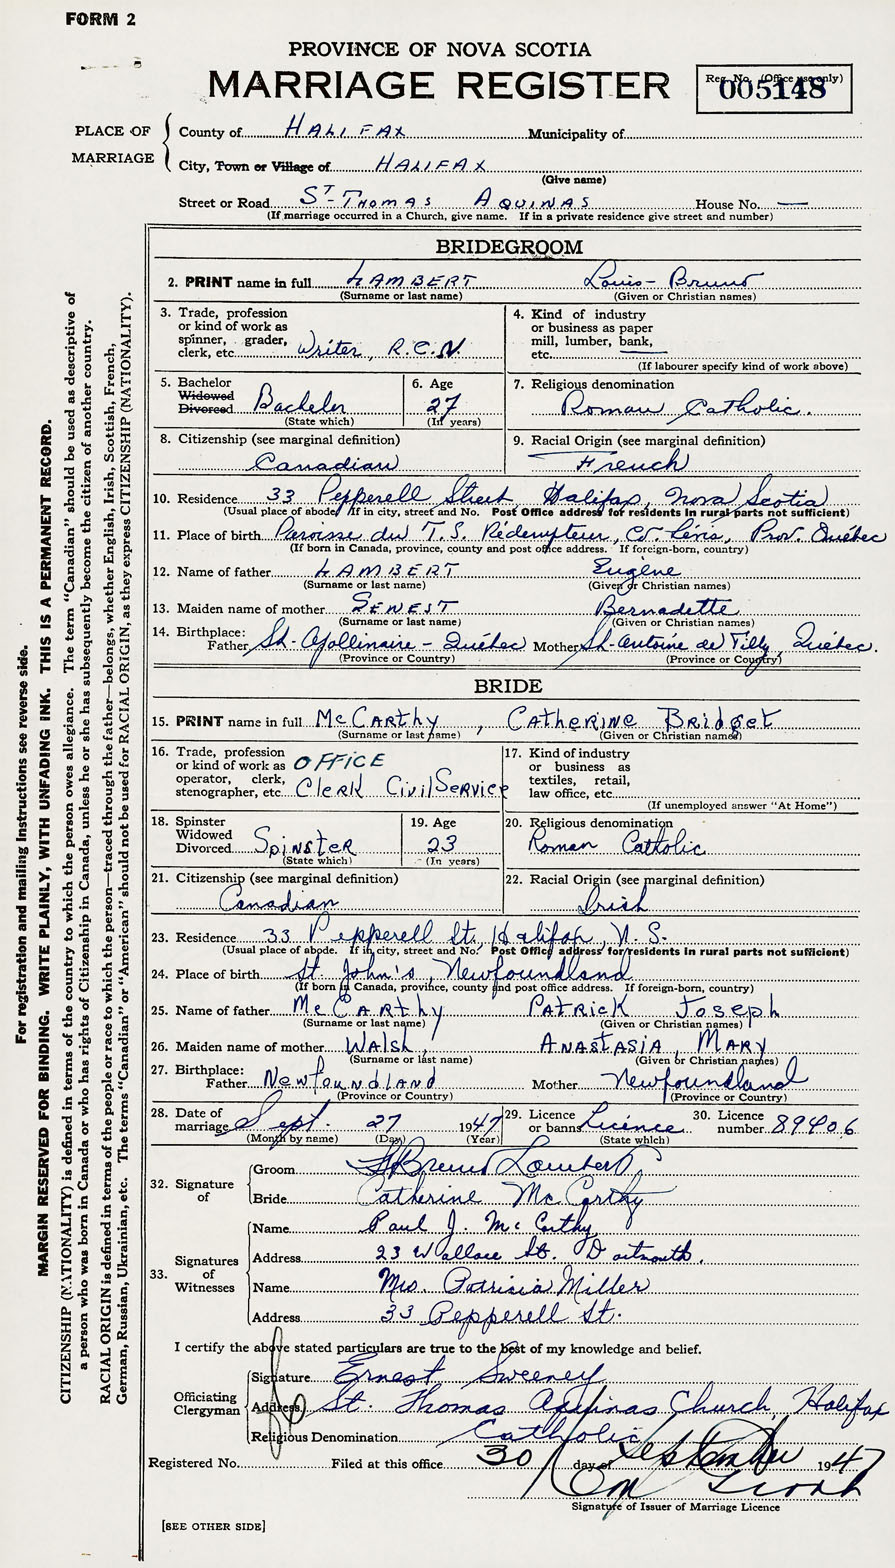 FORM 2
PROVINCE OF NOVA SCOTIA
MARRIAGE REGISTER
Reg. No. (Office use only)
005148
PLACE OF MARRIAGE
County of HALIFAX Municipality of
City, Town or Village of HALIFAX
(Give name)
Street or Road ST-THOMAS AQUINAS House No. —
(If marriage occurred in a Church, give name. If in a private residence give street and number)
BRIDEGROOM
2. PRINT name in full LAMBERT Louis-Bruno
(Surname or last name) (Given or Christian names)
3. Trade, profession or kind of work as spinner, grader, clerk, etc. Writer, R.C.N.
4. Kind of industry or business as paper mill, lumber, bank, etc. —
(If labourer specify kind of work above)
5. Bachelor Widowed Divorced Bachelor
(State which)
6. Age 27
(In years)
7. Religious denomination
Roman Catholic.
8. Citizenship (see marginal definition)
Canadian
9. Racial Origin (see marginal definition)
French
10. Residence 33 Pepperell Street Halifax, Nova Scotia
(Usual place of abode. If in city, street and No. Post Office address for residents in rural parts not sufficient)
11. Place of birth Paroisse du T.S. Rédempteur, Co. Lévis, Prov. Québec
(If born in Canada, province, county and post office address. If foreign-born, country)
12. Name of father LAMBERT Eugène
(Surname or last name) (Given or Christian names)
13. Maiden name of mother SENEST Bernadette
(Surname or last name) (Given or Christian names)
14. Birthplace:
Father St-Apollinaire-Québec Mother St-Antoine de Tilly, Québec.
(Province or Country) (Province or Country)
BRIDE
15. PRINT name in full McCARTHY, CATHERINE BRIDGET
(Surname or last name) (Given or Christian names)
16. Trade, profession or kind of work as operator, clerk, stenographer, etc. OFFICE CLERK CIVIL SERVICE
17. Kind of industry or business as textiles, retail, law office, etc.
(If unemployed answer "At Home")
18. Spinster Widowed Divorced SPINSTER
(State which)
19. Age 23
(In years)
20. Religious denomination
Roman Catholic
21. Citizenship (see marginal definition)
Canadian
22. Racial Origin (see marginal definition)
Irish
23. Residence 33 Pepperell St., Halifax, N.S.
(Usual place of abode. If in city, street and No. Post Office address for residents in rural parts not sufficient)
24. Place of birth St. John's, Newfoundland
(If born in Canada, province, county and post office address. If foreign-born, country)
25. Name of father McCARTHY PATRICK JOSEPH
(Surname or last name) (Given or Christian names)
26. Maiden name of mother WALSH, ANASTASIA, MARY
(Surname or last name) (Given or Christian names)
27. Birthplace:
Father NEWFOUNDLAND Mother Newfoundland
(Province or Country) (Province or Country)
28. Date of marriage Sept. 27 1947
(Month by name) (Day) (Year)
29. Licence or banns Licence
(State which)
30. Licence number 89406
32. Signature of
Groom L Bruno Lambert
Bride Catherine McCarthy
33. Signatures of Witnesses
Name Paul J. McCarthy
Address 23 Wallace St. Dartmouth.
Name Mrs. Patricia Miller
Address 33 Pepperell St.
I certify the above stated particulars are true to the best of my knowledge and belief.
Officiating Clergyman
Signature Ernest Sweeney
Address St. Thomas Aquinas Church, Halifax
Religious Denomination Catholic
Registered No. Filed at this office 30 day of September 1947
Signature of Issuer of Marriage Licence
[SEE OTHER SIDE]
For registration and mailing instructions see reverse side.
MARGIN RESERVED FOR BINDING. WRITE PLAINLY, WITH UNFADING INK. THIS IS A PERMANENT RECORD.
CITIZENSHIP (NATIONALITY) is defined in terms of the country to which the person owes allegiance. The term "Canadian" should be used as descriptive of
a person who was born in Canada or who has rights of Citizenship in Canada, unless he or she has subsequently become the citizen of another country.
RACIAL ORIGIN is defined in terms of the people or race to which the person—traced through the father—belongs, whether English, Irish, Scottish, French,
German, Russian, Ukrainian, etc. The terms "Canadian" or "American" should not be used for RACIAL ORIGIN, as they express CITIZENSHIP (NATIONALITY).